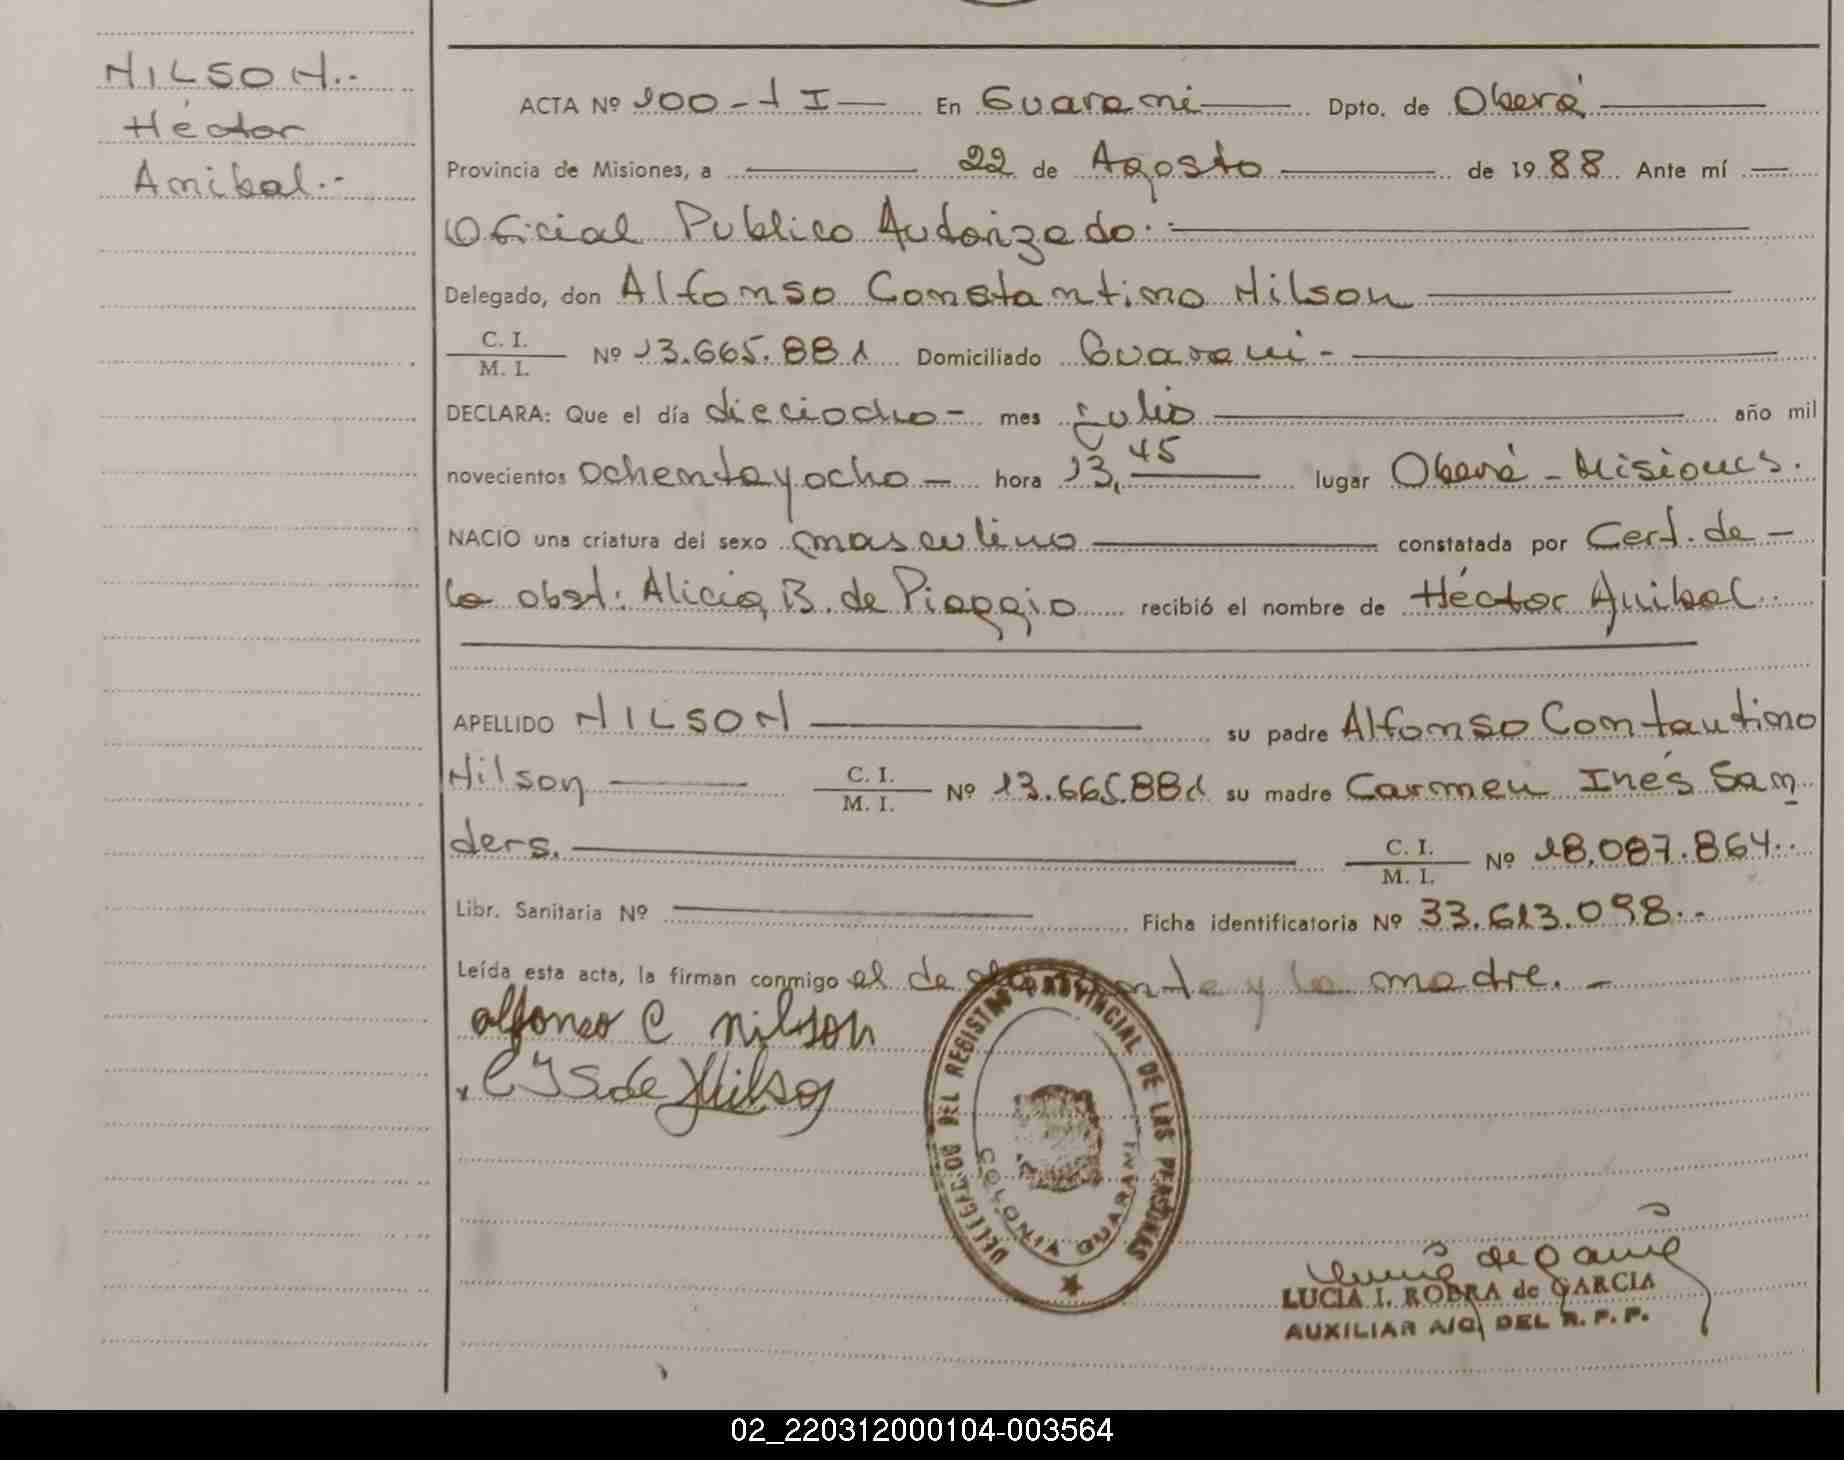 NILSON.-
Héctor
Anibal.-
ACTA Nº 100-TI En Guarani Dpto. de Oberá
Provincia de Misiones, a 22 de Agosto de 1988. Ante mí
Oficial Publico Autorizado.-
Delegado, don Alfonso Constantino Nilson
C. I.
M. I. Nº 13.665.881 Domiciliado Guarani-
DECLARA: Que el día dieciocho- mes julio año mil
novecientos ochenta y ocho- hora 13,45 lugar Oberá-Misiones.
NACIO una criatura del sexo masculino constatada por Cert. de-
la obst: Alicia B. de Piaggio recibió el nombre de Héctor Anibal.
APELLIDO NILSON su padre Alfonso Contantino
Nilson C. I.
M. I. Nº 13.665.881 su madre Carmen Inés San
ders. C. I.
M. I. Nº 18.087.864.-
Libr. Sanitaria Nº Ficha identificatoria Nº 33.613.098.-
Leída esta acta, la firman conmigo el de y la madre.-
alfonso C nilson
C I S de Nilson
DELEGADO DEL REGISTRO PROVINCIAL DE LAS PERSONAS
COLONIA GUARANI
LUCIA I. ROBRA de GARCIA
AUXILIAR A/C. DEL R. P. P.
02_220312000104-003564